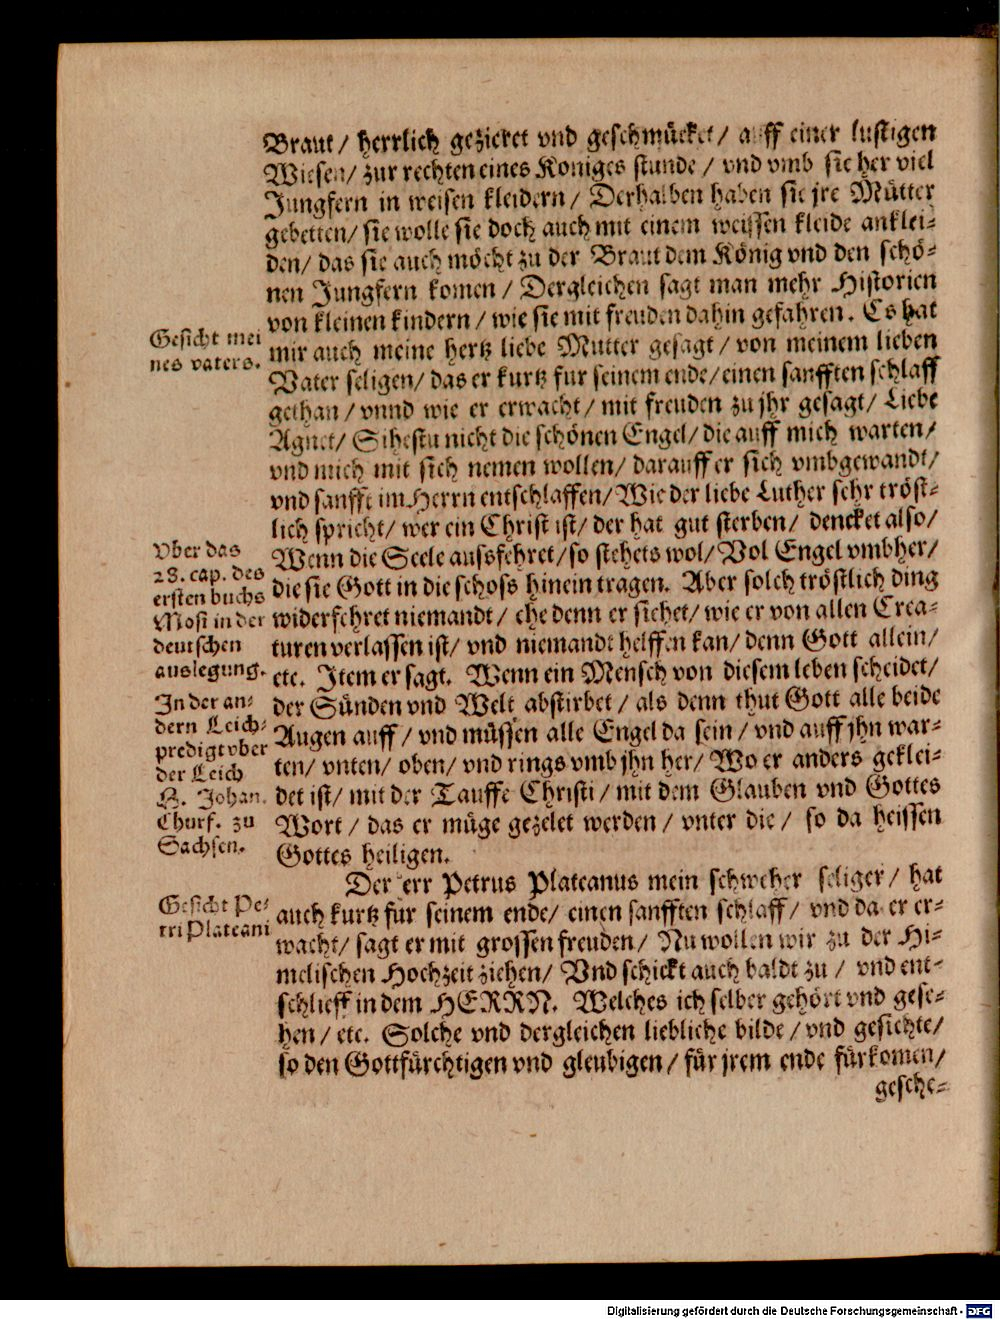 Braut / herrlich gezieret vnd geschmücket / auff einer lustigen
Wiesen / zur rechten eines Koniges stunde / vnd vmb sie her viel
Jungfern in weisen kleidern / Derhalben haben sie jre Mütter
gebetten / sie wolle sie doch auch mit einem weissen kleide anklei-
den / das sie auch möcht zu der Braut dem König vnd den schö-
nen Jungfern komen / Dergleichen sagt man mehr Historien
von kleinen kindern / wie sie mit freuden dahin gefahren. Es hat
mir auch meine hertz liebe Mutter gesagt / von meinem lieben
Vater seligen / das er kurtz fur seinem ende / einen sanfften schlaff
gethan / vnnd wie er erwacht / mit freuden zu jhr gesagt / Liebe
Agnet / Sihestu nicht die schönen Engel / die auff mich warten /
vnd mich mit sich nemen wollen / darauff er sich vmbgewandt /
vnd sanfft im Herrn entschlaffen / Wie der liebe Luther sehr tröst-
lich spricht / wer ein Christ ist / der hat gut sterben / dencket also /
Wenn die Seele aussfehret / so stehets wol / Vol Engel vmbher /
die sie Gott in die schoss hinein tragen. Aber solch tröstlich ding
widerfehret niemandt / ehe denn er siehet / wie er von allen Crea-
turen verlassen ist / vnd niemandt helffen kan / denn Gott allein /
etc. Item er sagt. Wenn ein Mensch von diesem leben scheidet /
der Sünden vnd Welt abstirbet / als denn thut Gott alle beide
Augen auff / vnd müssen alle Engel da sein / vnd auff jhn war-
ten / vnten / oben / vnd rings vmb jhn her / Wo er anders geklei-
det ist / mit der Tauffe Christi / mit dem Glauben vnd Gottes
Wort / das er müge gezelet werden / vnter die / so da heissen
Gottes heiligen.
Der err Petrus Plateanus mein schweher seliger / hat
auch kurtz für seinem ende / einen sanfften schlaff / vnd da er er-
wacht / sagt er mit grossen freuden / Nu wollen wir zu der Hi-
melischen Hochzeit ziehen / Vnd schickt auch baldt zu / vnd ent-
schlieff in dem HERRN. Welches ich selber gehört vnd gese-
hen / etc. Solche vnd dergleichen liebliche bilde / vnd gesichte /
so den Gottfürchtigen vnd gleubigen / für jrem ende fürkomen /
gesche-
Gesicht mei
nes vaters.
Vber das
28. cap. des
ersten buchs
Mosi in der
deutschen
auslegung.
In der an-
dern Leich-
predigt vber
der Leich
H. Johan.
Churf. zu
Sachsen.
Gesicht Pe-
tri Plateani
Digitalisierung gefördert durch die Deutsche Forschungsgemeinschaft - DFG